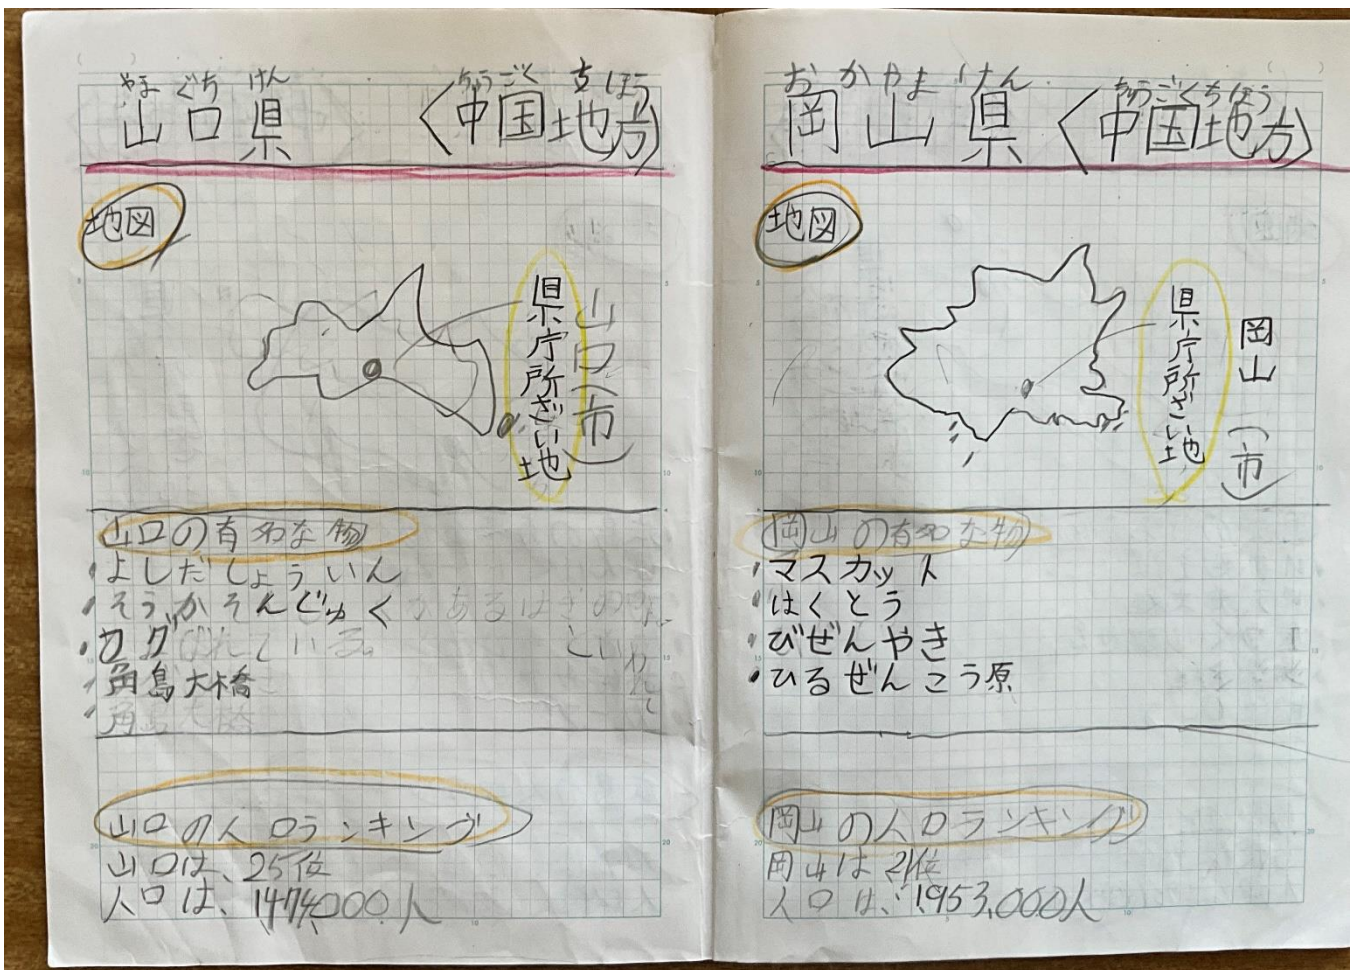 やまぐちけん ちゅうごくちほう
山口県 〈中国地方〉
地図
県庁所ざい地
山口(市)
山口の有名な物
・よしだしょういん
・そうかそんじゅく
・フグ
・角島大橋
山口の人口ランキング
山口は、25位
人口は、1474,000人
おかやまけん ちゅうごくちほう
岡山県 〈中国地方〉
地図
県庁所ざい地
岡山(市)
岡山の有名な物
・マスカット
・はくとう
・びぜんやき
・ひるぜんこう原
岡山の人口ランキング
岡山は21位
人口は、1,953,000人